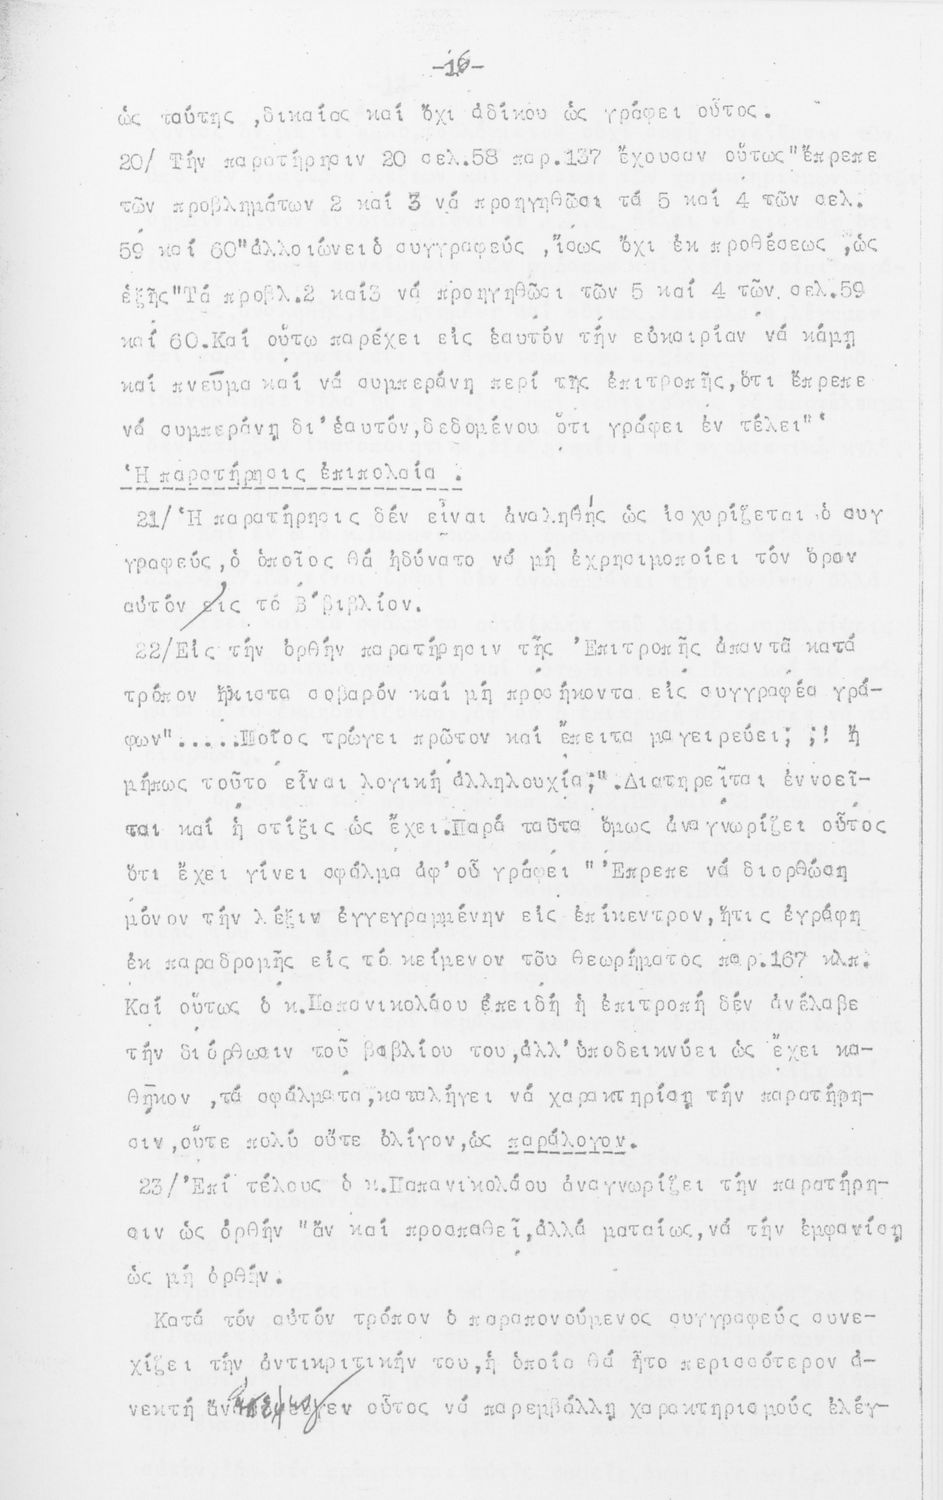 -16-
ὡς ταύτης ,δικαίας καί ὄχι ἀδίκου ὡς γράφει οὗτος.
20/ Τήν παρατήρησιν 20 σελ.58 παρ.137 ἔχουσαν οὕτως"ἔπρεπε
τῶν προβλημάτων 2 καί 3 νά προηγηθῶσι τά 5 καί 4 τῶν σελ.
59 καί 60"ἀλλοιώνει ὁ συγγραφεύς ,ἴσως ὄχι ἐκ προθέσεως ,ὡς
ἑξῆς"Τά προβλ.2 καί3 νά προηγηθῶσι τῶν 5 καί 4 τῶν σελ.59
καί 60.Καί οὕτω παρέχει εἰς ἑαυτόν τήν εὐκαιρίαν νά κάμῃ
καί πνεῦμα καί νά συμπεράνῃ περί τῆς ἐπιτροπῆς,ὅτι ἔπρεπε
νά συμπεράνῃ δι'ἑαυτόν,δεδομένου ὅτι γράφει ἐν τέλει"
Ἡ παρατήρησις ἐπιπολαία .
21/Ἡ παρατήρησις δέν εἶναι ἀναληθής ὡς ἰσχυρίζεται ὁ συγ
γραφεύς,ὁ ὁποῖος θά ἠδύνατο νά μή ἐχρησιμοποίει τόν ὅρον
αὐτόν εἰς τό Β΄βιβλίον.
22/Εἰς τήν ὀρθήν παρατήρησιν τῆς Ἐπιτροπῆς ἀπαντᾶ κατά
τρόπον ἥκιστα σοβαρόν καί μή προσήκοντα εἰς συγγραφέα γρά-
φων".....Ποῖος τρώγει πρῶτον καί ἔπειτα μαγειρεύει; ;! Ἤ
μήπως τοῦτο εἶναι λογική ἀλληλουχία;".Διατηρεῖται ἐννοεῖ-
ται καί ἡ στίξις ὡς ἔχει.Παρά ταῦτα ὅμως ἀναγνωρίζει οὗτος
ὅτι ἔχει γίνει σφάλμα ἀφ'οὗ γράφει "Ἔπρεπε νά διορθώσῃ
μόνον τήν λέξιν ἐγγεγραμμένην εἰς ἐπίκεντρον,ἥτις ἐγράφη
ἐκ παραδρομῆς εἰς τό κείμενον τοῦ θεωρήματος παρ.167 κλπ.
Καί οὕτως ὁ κ.Παπανικολάου ἐπειδή ἡ ἐπιτροπή δέν ἀνέλαβε
τήν διόρθωσιν τοῦ βαβλίου του,ἀλλ'ὑποδεικνύει ὡς ἔχει κα-
θῆκον ,τά σφάλματα,καταλήγει νά χαρακτηρίσῃ τήν παρατήρη-
σιν,οὔτε πολύ οὔτε ὀλίγον,ὡς παράλογον.
23/Ἐπί τέλους ὁ κ.Παπανικολάου ἀναγνωρίζει τήν παρατήρη-
σιν ὡς ὀρθήν "ἄν καί προσπαθεῖ,ἀλλά ματαίως,νά τήν ἐμφανίσῃ
ὡς μή ὀρθήν.
Κατά τόν αὐτόν τρόπον ὁ παραπονούμενος συγγραφεύς συνε-
χίζει τήν ἀντικριτικήν του,ἡ ὁποία θά ἦτο περισσότερον ἀ-
νεκτή ἄν οὗτος νά παρεμβάλλῃ χαρακτηρισμούς ἐλέγ-